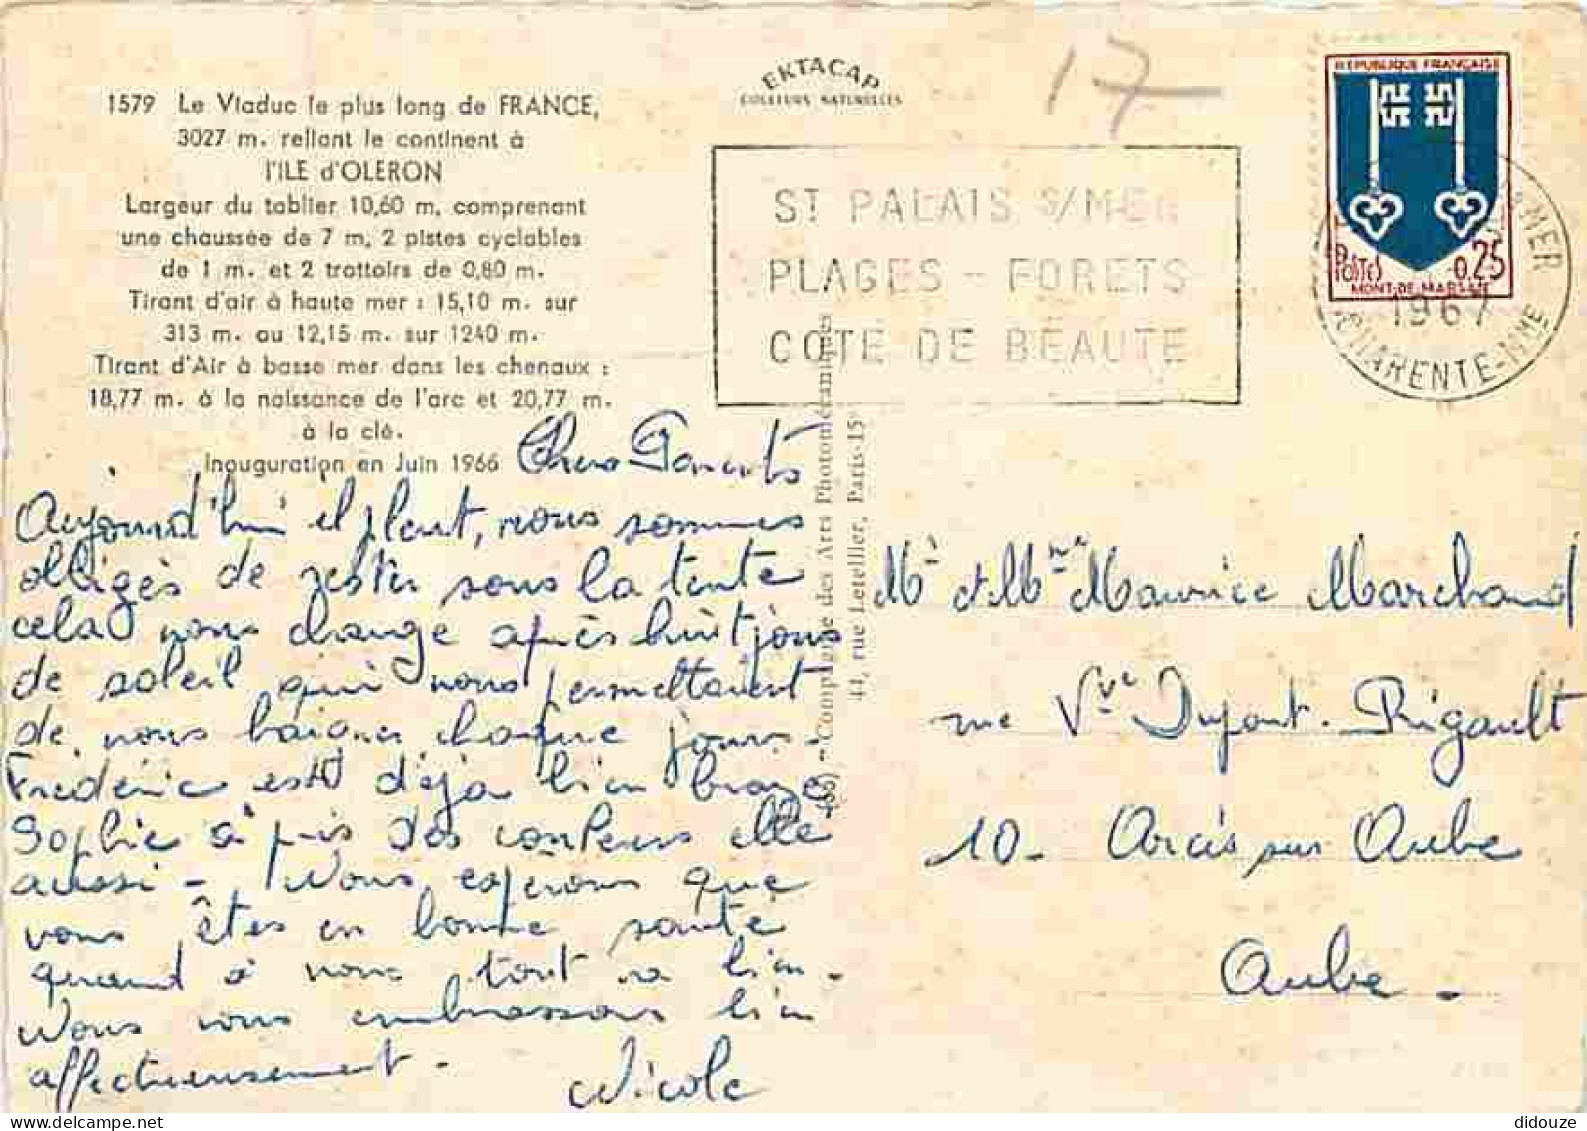 1579 Le Viaduc le plus long de FRANCE,
3027 m. reliant le continent à
l'ILE d'OLERON
Largeur du tablier 10,60 m. comprenant
une chaussée de 7 m, 2 pistes cyclables
de 1 m. et 2 trottoirs de 0,80 m.
Tirant d'air à haute mer : 15,10 m. sur
313 m. ou 12,15 m. sur 1240 m.
Tirant d'Air à basse mer dans les chenaux :
18,77 m. à la naissance de l'arc et 20,77 m.
à la clé.
Inauguration en Juin 1966
EKTACAP
COULEURS NATURELLES
17
ST PALAIS S/MER
PLAGES - FORETS
COTE DE BEAUTE
REPUBLIQUE FRANÇAISE
POSTES 0,25
MONT-DE-MARSAN
S-MER
1967
CHARENTE-MME
Chers Parents
Aujourd'hui il pleut, nous sommes
obligés de rester sous la tente
cela nous change après huit jours
de soleil qui nous permettaient
de nous baigner chaque jours.
Frédéric est déja bien bronzé
Sophie a pris des couleurs elle
aussi - Nous espérons que
vous êtes en bonne santé
quand à nous tout va bien.
Nous vous embrassons bien
affectueusement -
Nicole
Compagnie des Arts Photomécaniques
44, rue Letellier, Paris-15
Mr et Mme Maurice Marchand
rue Vve Dupont-Rigault
10 - Arcis sur Aube
Aube -
didouze